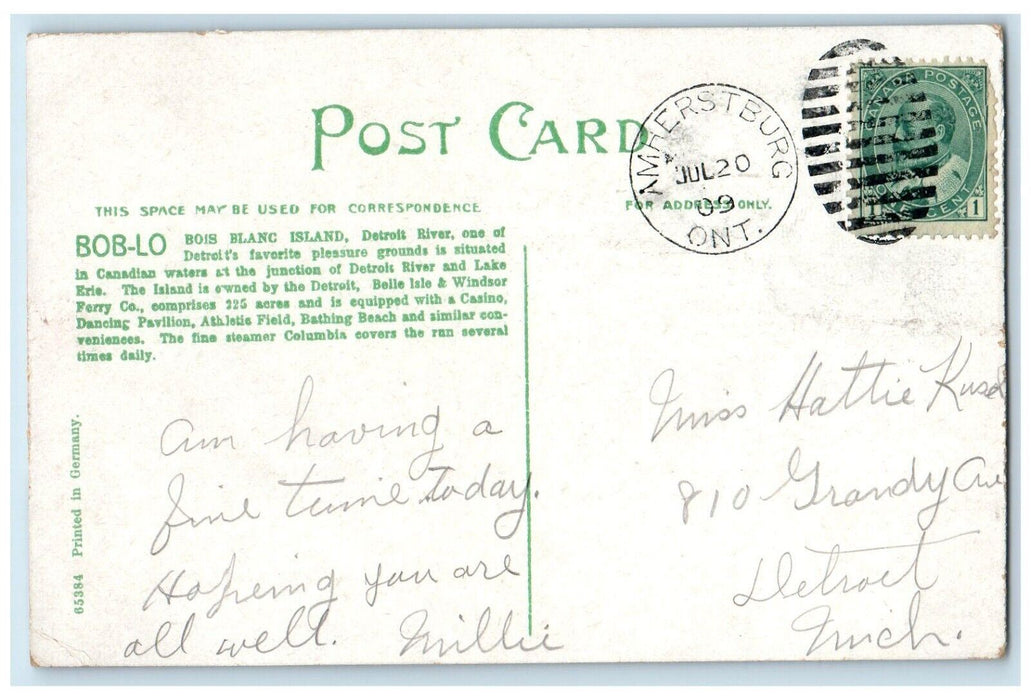 POST CARD
THIS SPACE MAY BE USED FOR CORRESPONDENCE
FOR ADDRESS ONLY.
AMHERSTBURG
JUL 20
09
ONT.
CANADA POSTAGE
1 CENT 1
BOB-LO BOIS BLANC ISLAND, Detroit River, one of
Detroit's favorite pleasure grounds is situated
in Canadian waters at the junction of Detroit River and Lake
Erie. The Island is owned by the Detroit, Belle Isle & Windsor
Ferry Co., comprises 225 acres and is equipped with a Casino,
Dancing Pavilion, Athletic Field, Bathing Beach and similar con-
veniences. The fine steamer Columbia covers the run several
times daily.
65384 Printed in Germany.
Am having a
fine time today.
Hopeing you are
all well. Millie
Miss Hattie
810 Grandy Ave
Detroit
Mich.